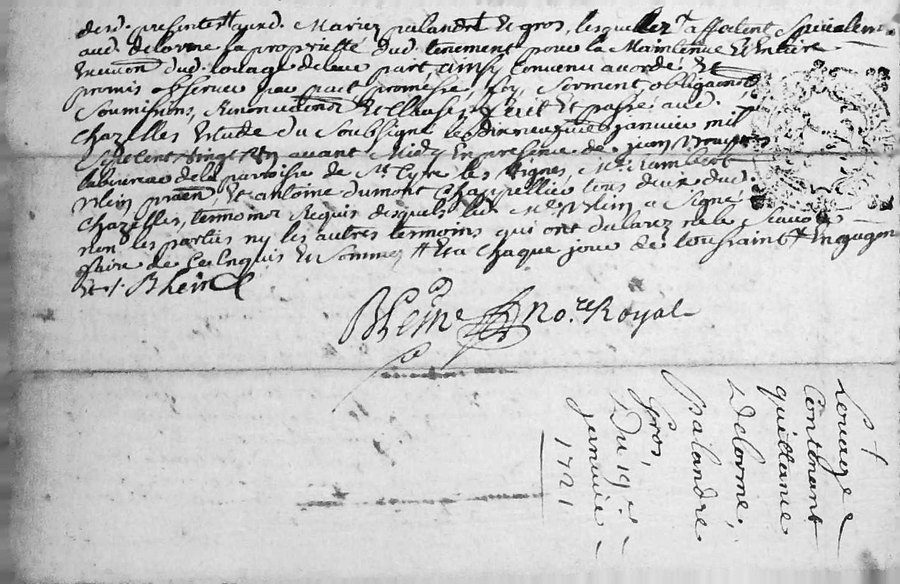 desd. presents aud. Mariez palandre et gros, lesquelles affectent specialem.
aud. delorme la propriete dud. tenement pour la Maintenue Entiere
dud. louage de leur part, ainsy Convenu accordé Et
promis observer par pact promesse, foy, serment, obligaons
Soumisions, Renonciaons Et Clauses, Fait Et passé aud.
Chazelles Estude du Soubsigné le dixneuvieme janvier mil
Sept Cent vingt Un avant Midy En presence de jean
laboureur de la parroisse de St Cyre les Vignes, Me Rambert
Rhein praen. Et antoine dumont Chappellier tous deux dud.
Chazelles, temoins Requis desquels led. Me Rhein a Signé
non les parties ny les autres temoins qui ont declarez ne le Scavoir
faire de Ce Enquis Et Sommez # Et a Chaque jour de toussaint #
Rhein
Rheine No.re Royal
Louage
Contenant
quittance
Delorme,
Palandre
Gros,
Du 19e
janvier
1721